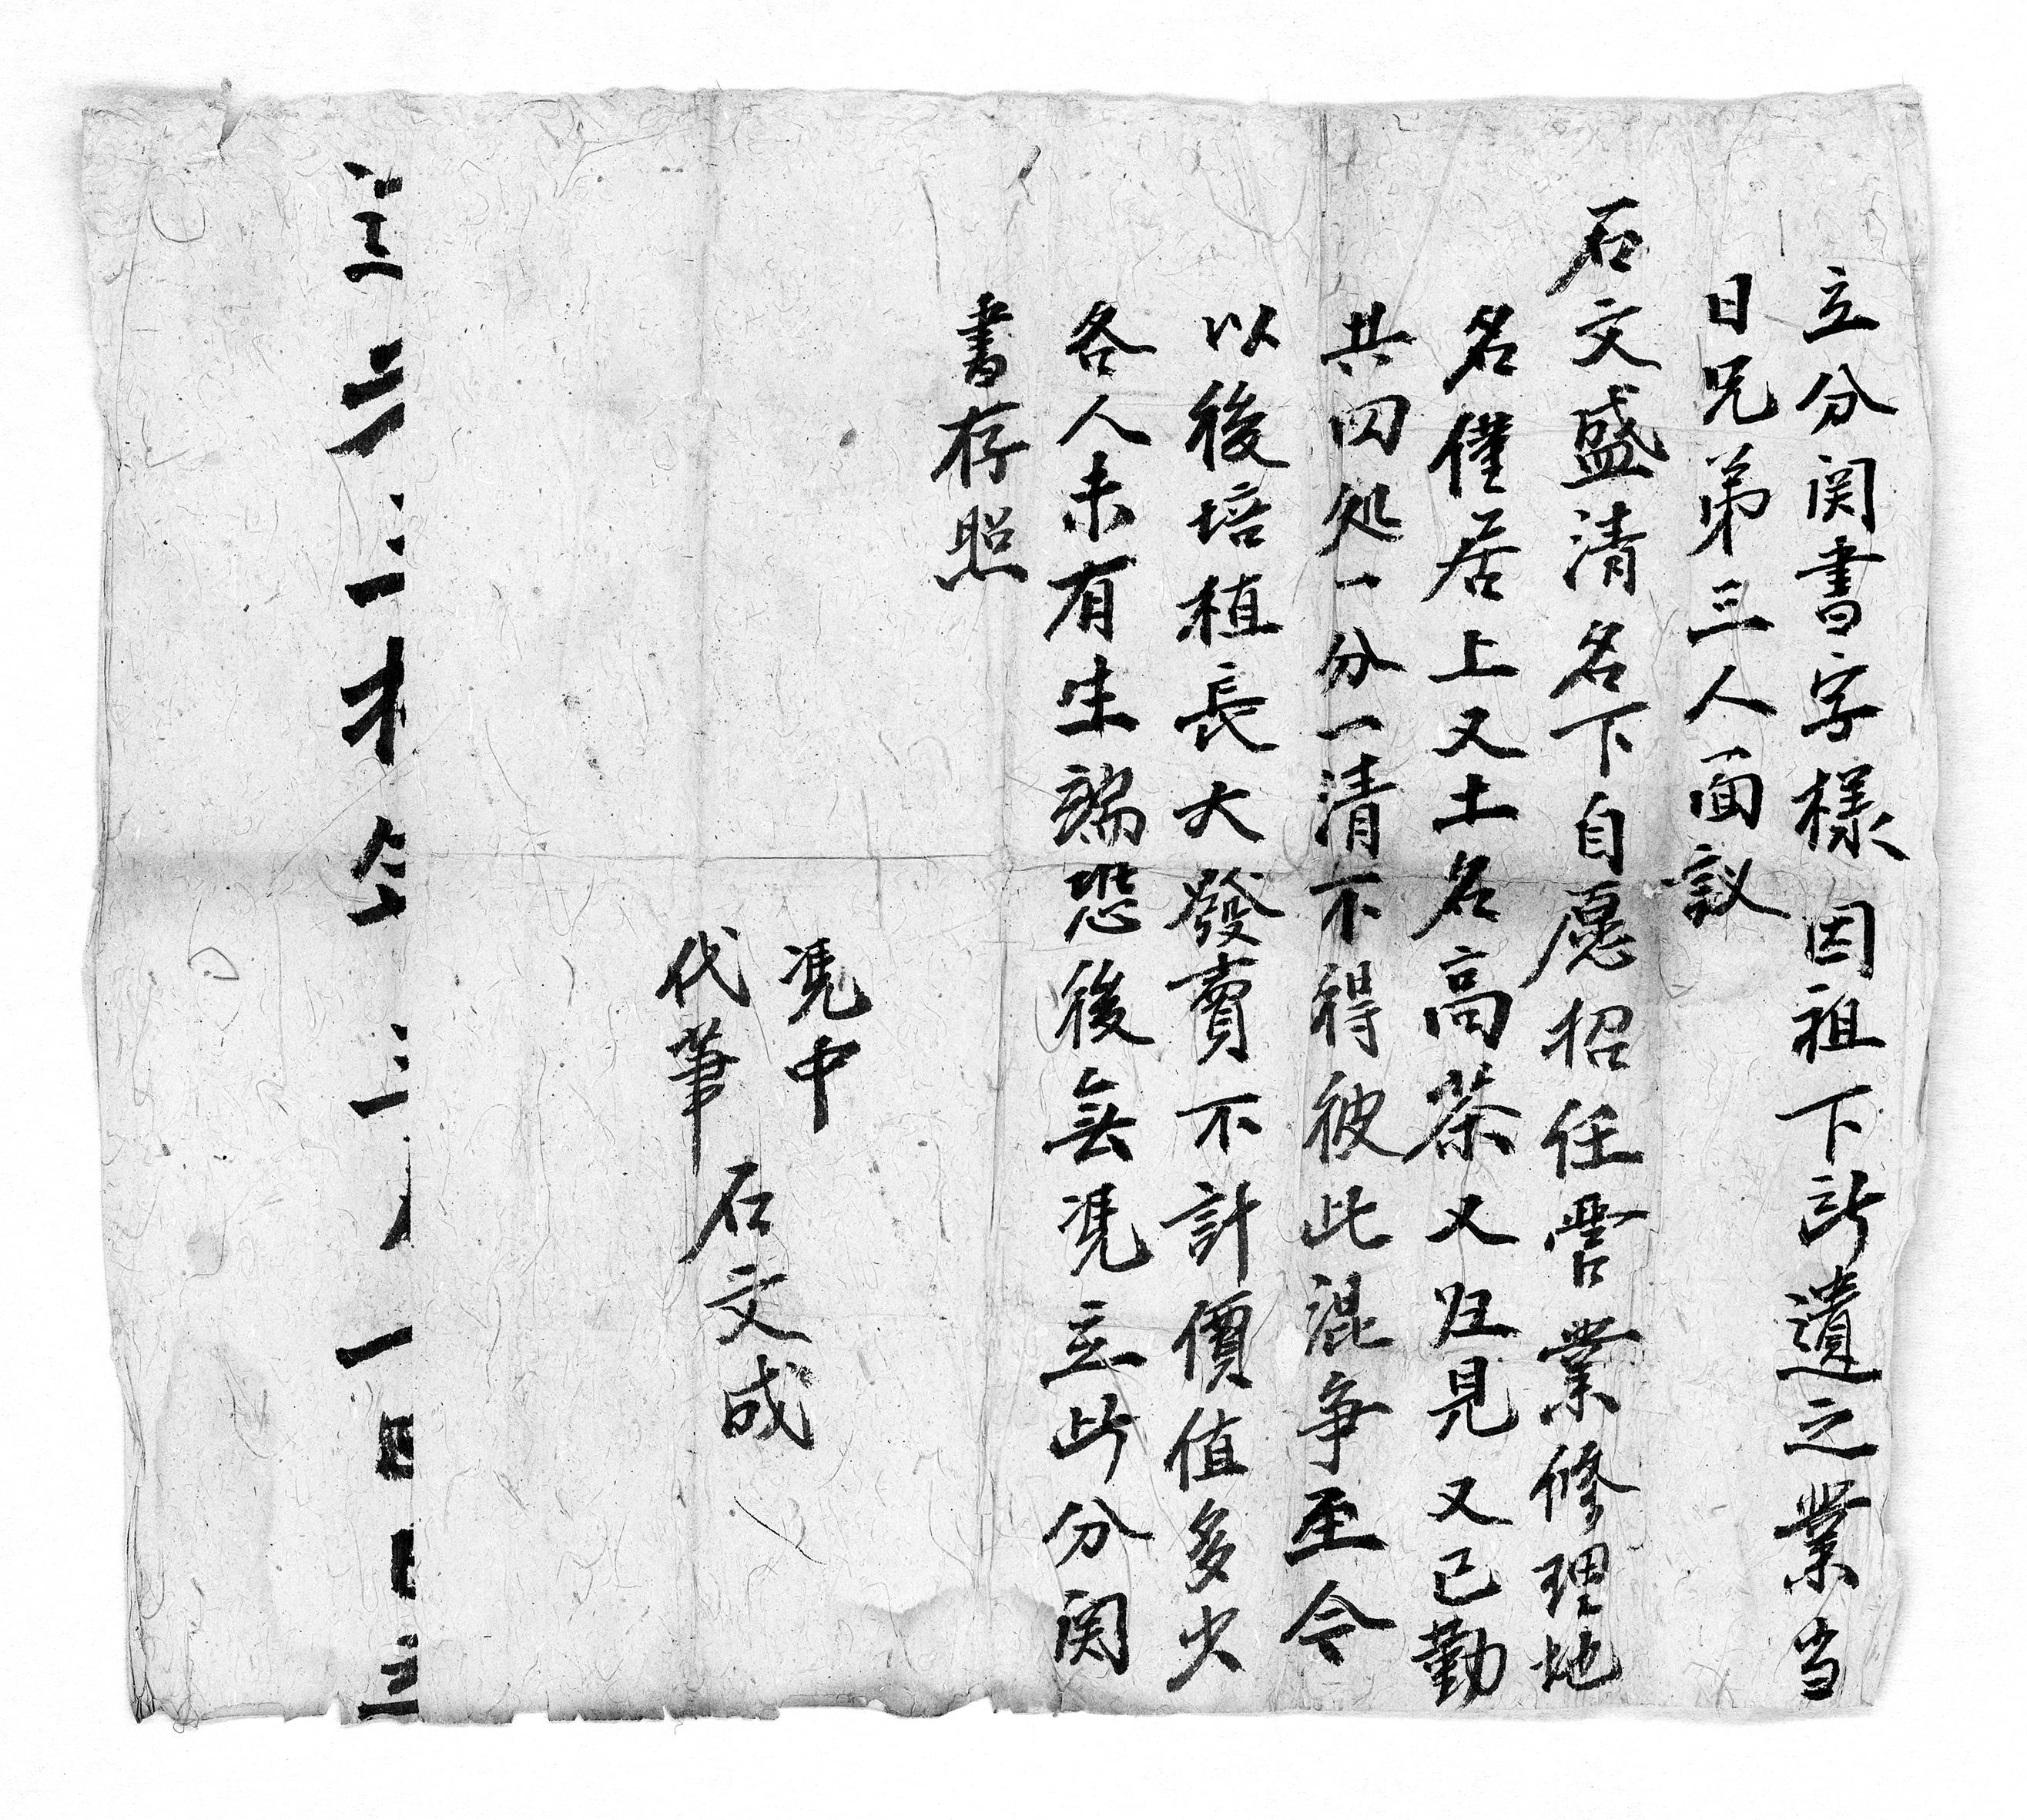 立分関書字樣因祖下所遺之業当
日兄弟三人面议
石文盛清名下自愿招任营業修理地
名僅居上又土名高茶又归見又己勤
共四处一分一清不得彼此混争至今
以後培植長大發賣不計價值多少
各人未有生端恐後無凴立此分関
書存照
凴中
代筆 石文成